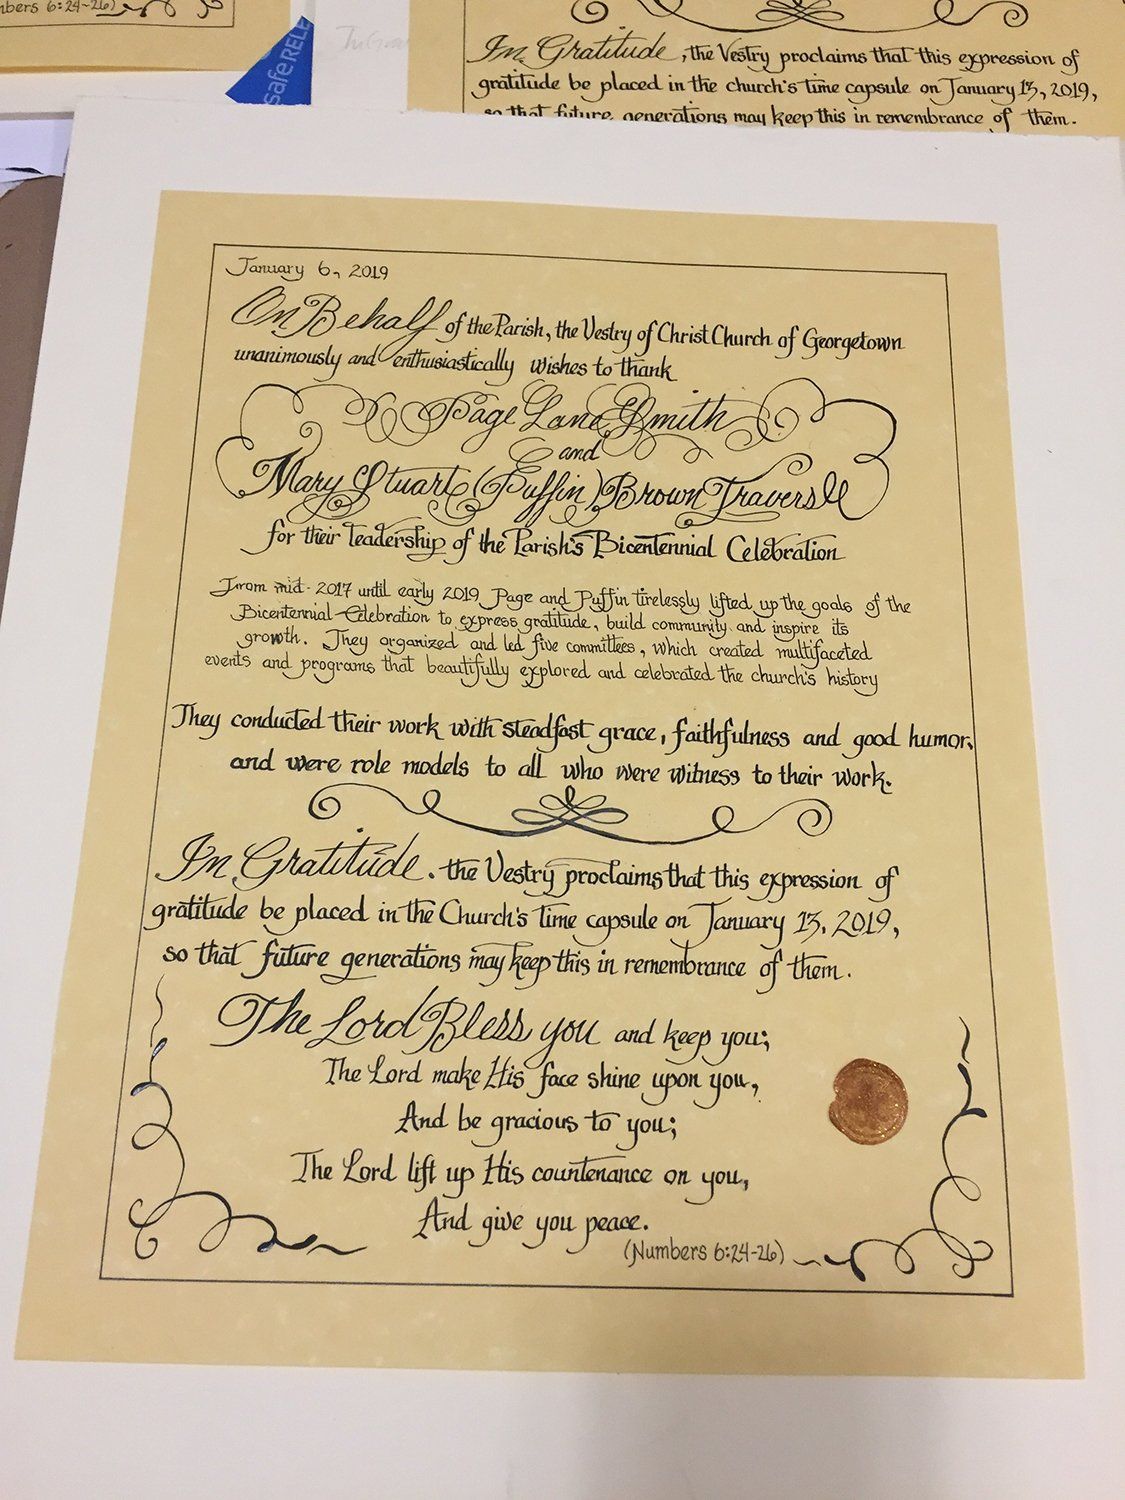 mbers 6:24-26)
safeRELE
In Gratitude, the Vestry proclaims that this expression of
gratitude be placed in the church's time capsule on January 13, 2019,
so that future generations may keep this in remembrance of them.
January 6, 2019
On Behalf of the Parish, the Vestry of Christ Church of Georgetown
unanimously and enthusiastically wishes to thank
Page Lane Smith
and
Mary Stuart (Puffin) Brown Travers
for their leadership of the Parish's Bicentennial Celebration
From mid-2017 until early 2019 Page and Puffin tirelessly lifted up the goals of the
Bicentennial Celebration to express gratitude, build community and inspire its
growth. They organized and led five committees, which created multifaceted
events and programs that beautifully explored and celebrated the church's history
They conducted their work with steadfast grace, faithfulness and good humor,
and were role models to all who were witness to their work.
In Gratitude. the Vestry proclaims that this expression of
gratitude be placed in the Church's time capsule on January 13, 2019,
so that future generations may keep this in remembrance of them.
The Lord Bless you and keep you;
The Lord make His face shine upon you,
And be gracious to you;
The Lord lift up His countenance on you,
And give you peace.
(Numbers 6:24-26)